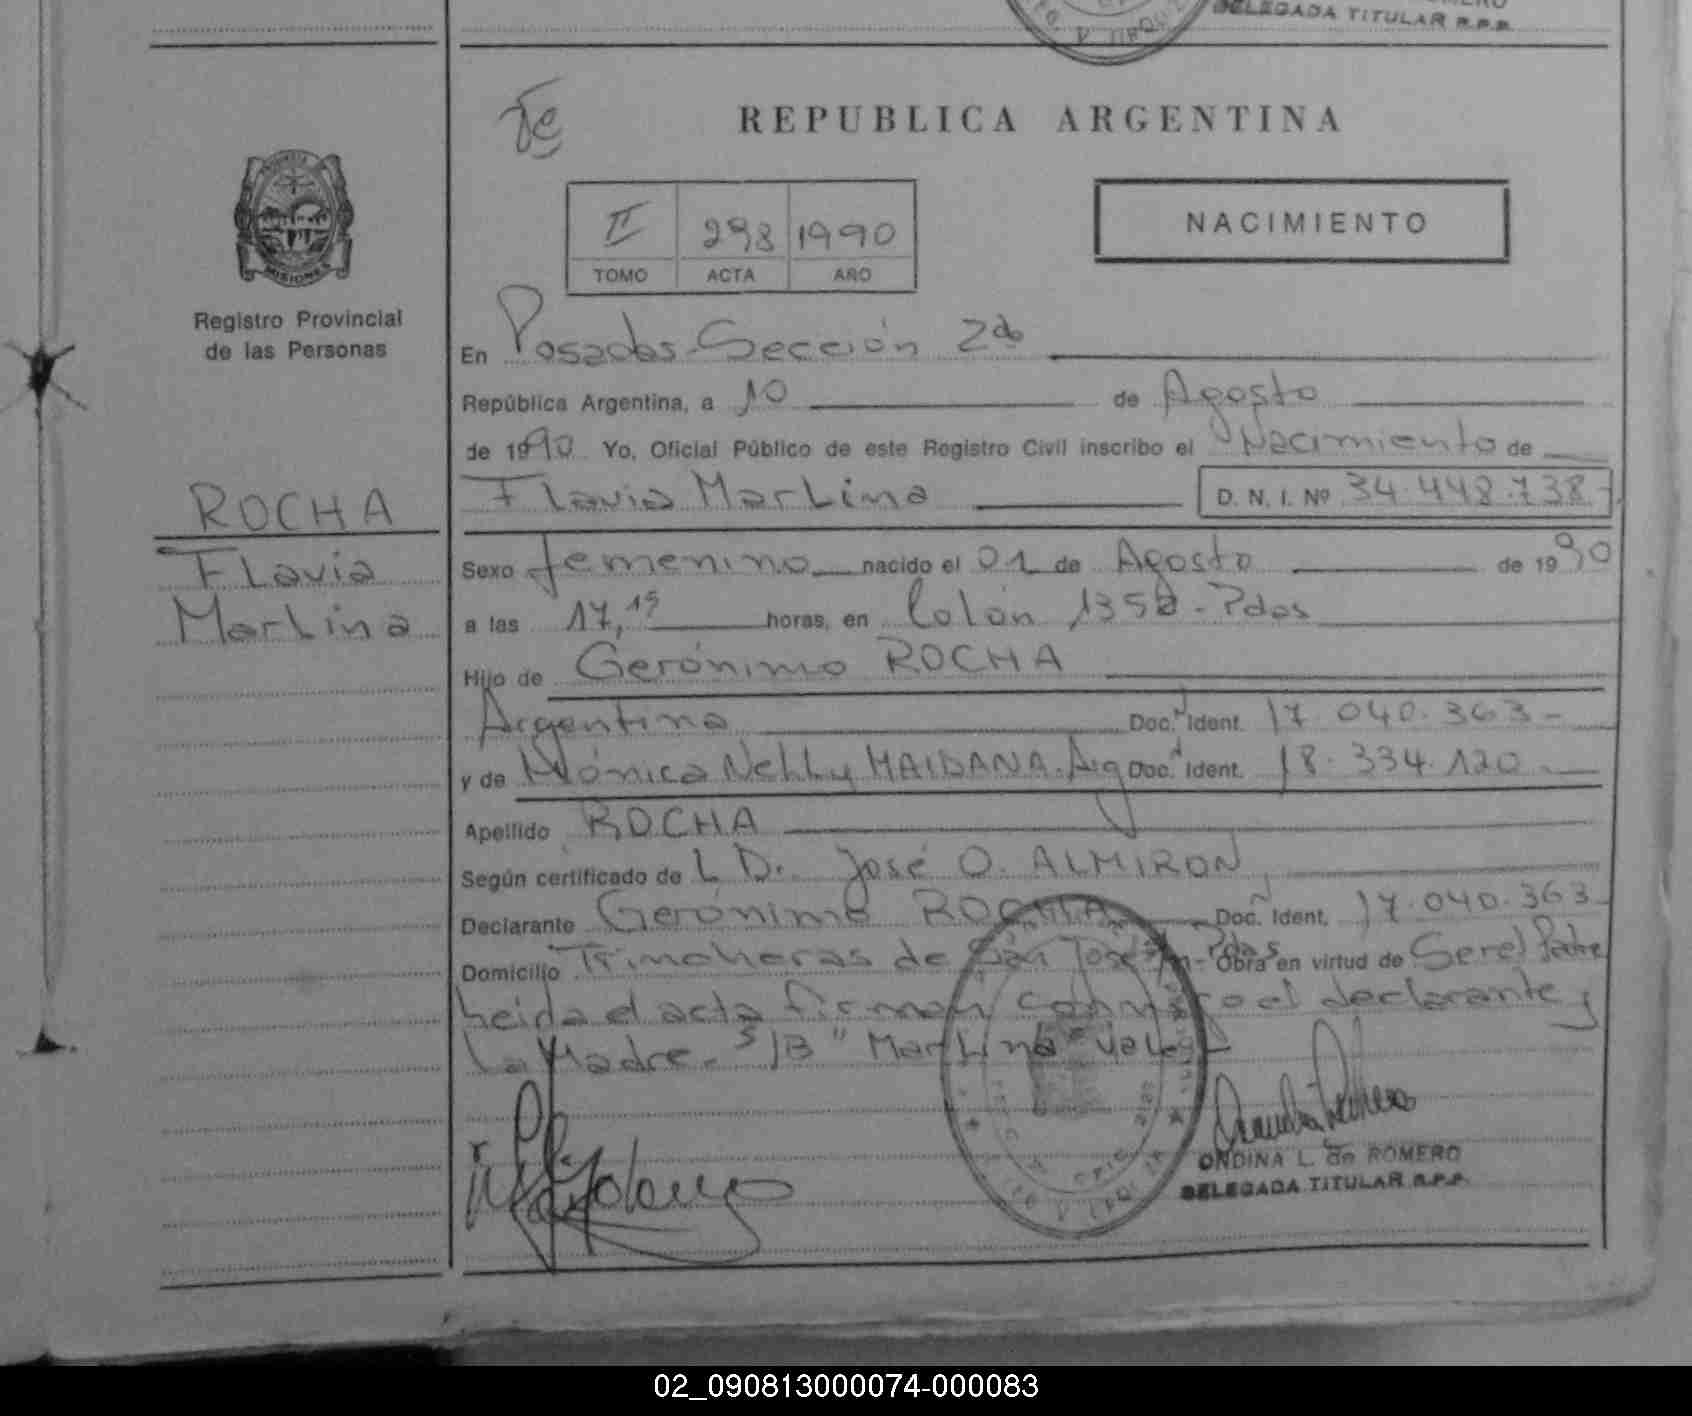 ROMERO
DELEGADA TITULAR R.P.P.
REPUBLICA ARGENTINA
MISIONES
Registro Provincial
de las Personas
II 298 1990
TOMO ACTA AÑO
NACIMIENTO
En Posadas-Sección 2da
República Argentina, a 10 de Agosto
de 1990 Yo, Oficial Público de este Registro Civil inscribo el Nacimiento de
Flavia Martina D. N. I. Nº 34.448.738-
ROCHA
Flavia
Martina
Sexo femenino nacido el 01 de Agosto de 1990
a las 17,15 horas, en Colón 1358-Pdas
Hijo de Gerónimo ROCHA
Argentina Doc. Ident. 17.040.363-
y de Mónica Nelly MAIDANA. Arg Doc. Ident. 18.334.120-
Apellido ROCHA
Según certificado de L D. José O. ALMIRON
Declarante Gerónimo ROCHA Doc. Ident. 17.040.363-
Domicilio Trincheras de San José Pdas Obra en virtud de Ser el Padre
Leida el acta firman conmigo el declarante y
La Madre. S/B "Martina" Vale-
ONDINA L. de ROMERO
DELEGADA TITULAR R.P.P.
02_090813000074-000083